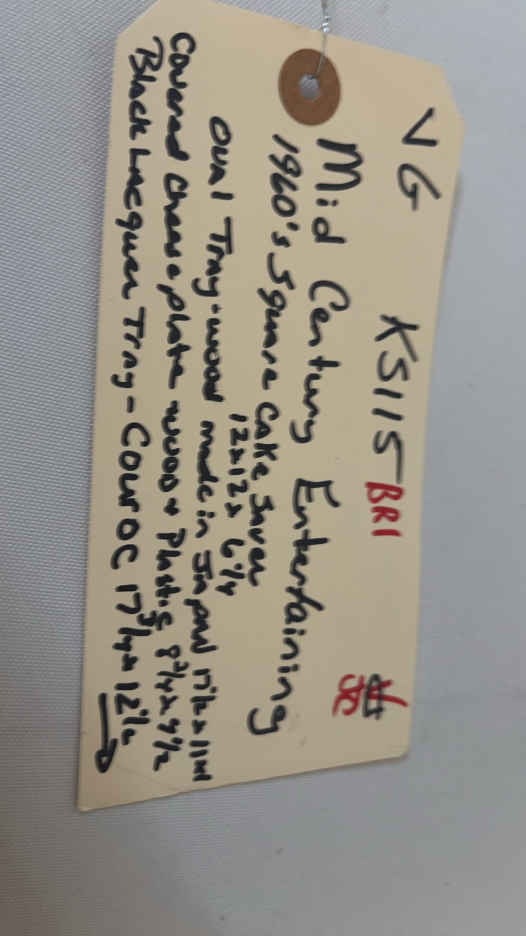 VG KS115 BRI
Mid Century Entertaining
1960's Square Cake Saver
12x12x 6 1/4
Oval Tray-wood made in Japan 17 1/2 x 11
Covered Cheese plate wood & Plastic 8 3/4 x 9 1/2
Black Lacquer Tray - Couroc 17 3/4 x 12 1/2 →